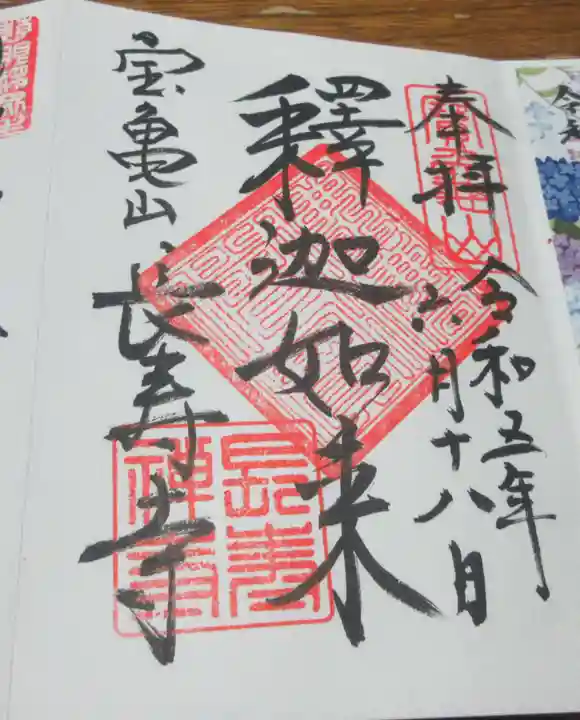 奉拝
令和五年
六月十八日
釋迦如来
宝亀山 長寿寺
長寿禅寺
令和